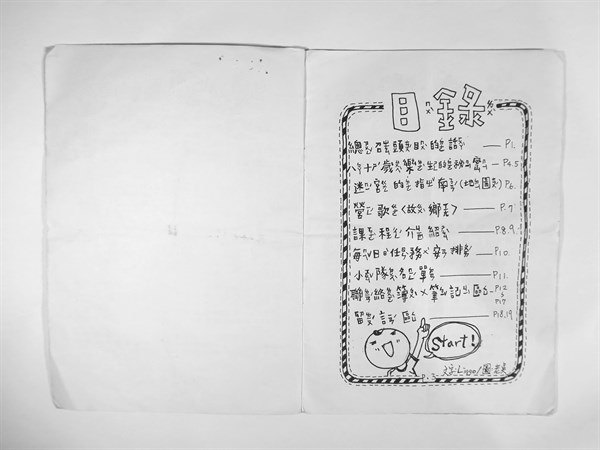 目錄
總召頭目的話 P1.
八十歲樂生的秘密 P4.5
迷宮的指南(地圖) P6.
營歌〈故鄉〉 P.7
課程介紹 P8.9.
每日任務×安排 P10.
小隊名單 P11.
聯絡簿×筆記區 P12 P17
留言區 P18.19
Start!
P.3